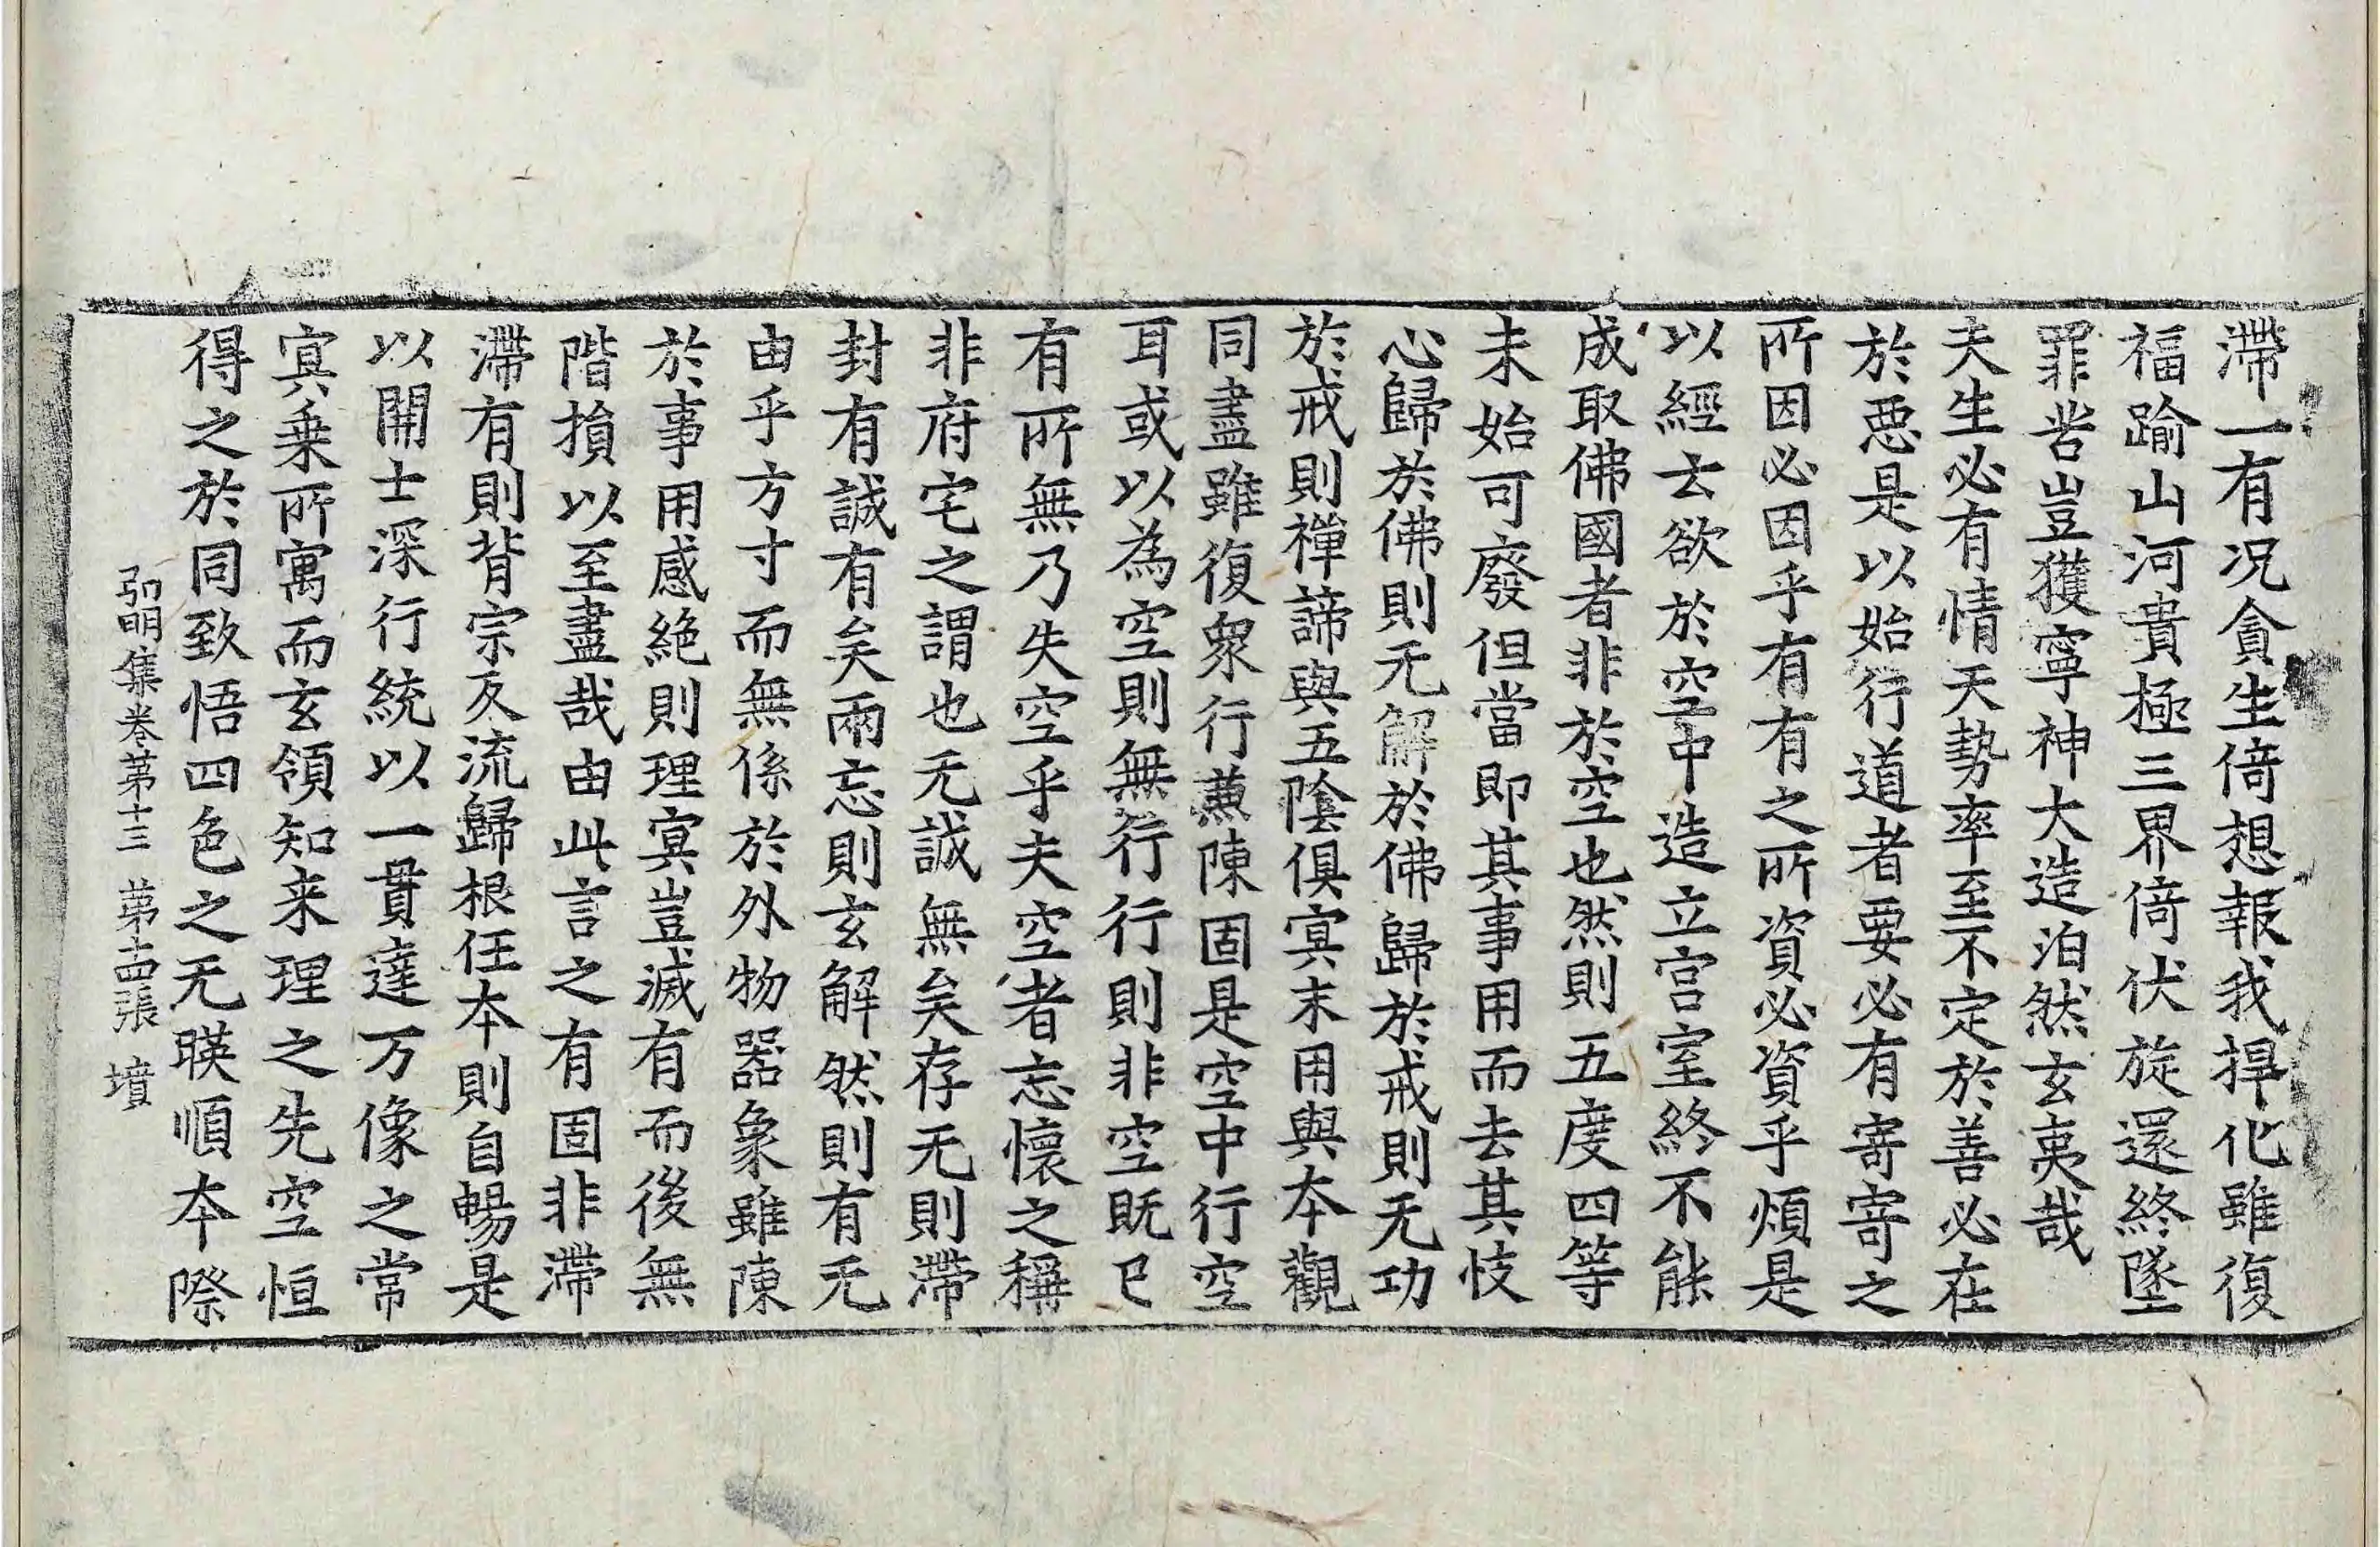 滯一有況貪生倚想報我捍化雖復
福踰山河貴極三界倚伏旋還終墜
罪咎豈獲寧神大造泊然玄夷哉
夫生必有情天勢率至不定於善必在
於惡是以始行道者要必有寄寄之
所因必因乎有有之所資必資乎煩是
以經云欲於空中造立宮室終不能
成取佛國者非於空也然則五度四等
未始可廢但當即其事用而去其忮
心歸於佛則无解於佛歸於戒則无功
於戒則禪諦與五陰俱冥末用與本觀
同盡雖復衆行蕙陳固是空中行空
耳或以為空則無行行則非空既已
有所無乃失空乎夫空者忘懷之稱
非府宅之謂也无誠無矣存无則滯
封有誠有矣兩忘則玄解然則有无
由乎方寸而無係於外物器象雖陳
於事用感絶則理冥豈滅有而後無
階損以至盡哉由此言之有固非滯
滯有則背宗反流歸根任本則自暢是
以開士深行統以一貫達万像之常
冥乗所寓而玄領知来理之先空恒
得之於同致悟四色之无暎順本際
弘明集卷第十三　第十四張　墳